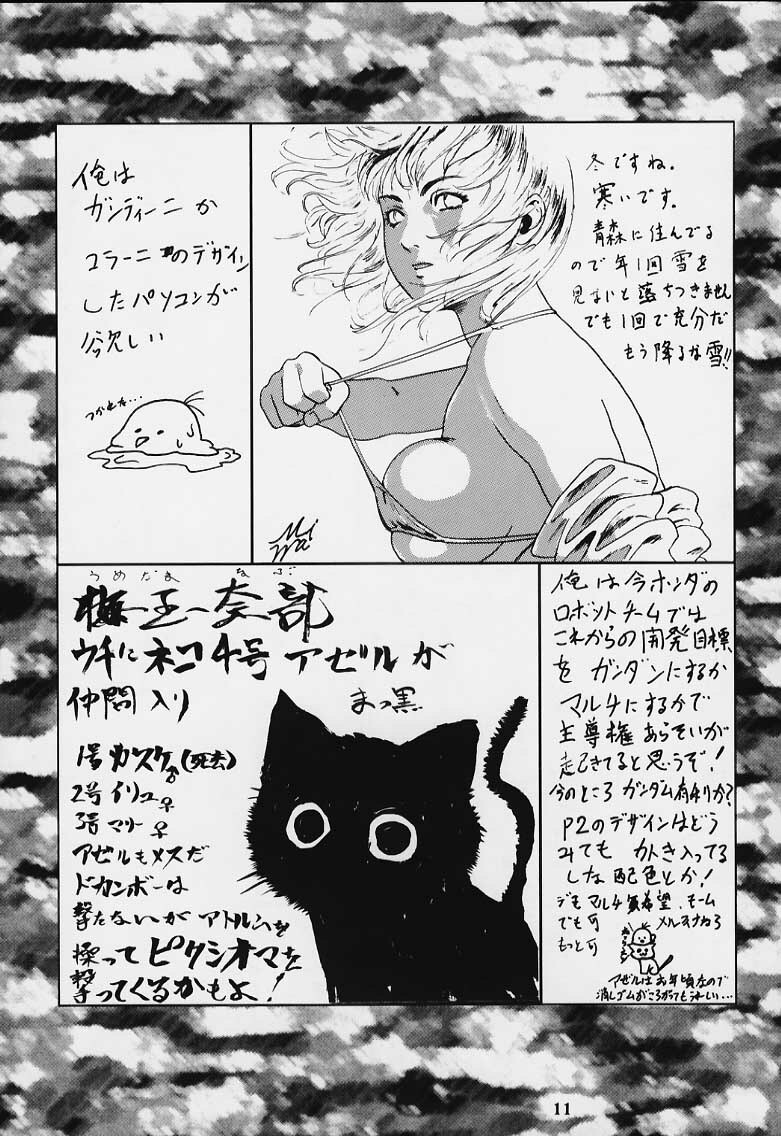 冬ですね。
寒いです。
青森に住んでる
ので年1回雪を
見ないと落ちつきません
でも1回で充分だ
もう降るな雪!!
俺は
ガンディーニか
コラーニのデザイン
したパソコンが
欲しい
つかれた…
うめだま なぶ
梅玉奈部
ウチにネコ4号アゼルが
仲間入り
まっ黒
1号カスケ♂(死去)
2号イリュ♀
3号マリー♀
アゼルもメスだ
ドカンボーは
撃たないがアトルムを
操ってピクシオマを
撃ってくるかもよ!
俺は今ホンダの
ロボットチームでは
これからの開発目標
をガンダンにするか
マルチにするかで
主導権あらそいが
起きてると思うぞ!
今のところガンダム有利か?
P2のデザインはどう
みても 入ってる
しな配色とか!
デモマルチ希望。モーム
でも可
もっと可
アゼルはお年頃なので
消しゴムがころがってもうれしい…
11